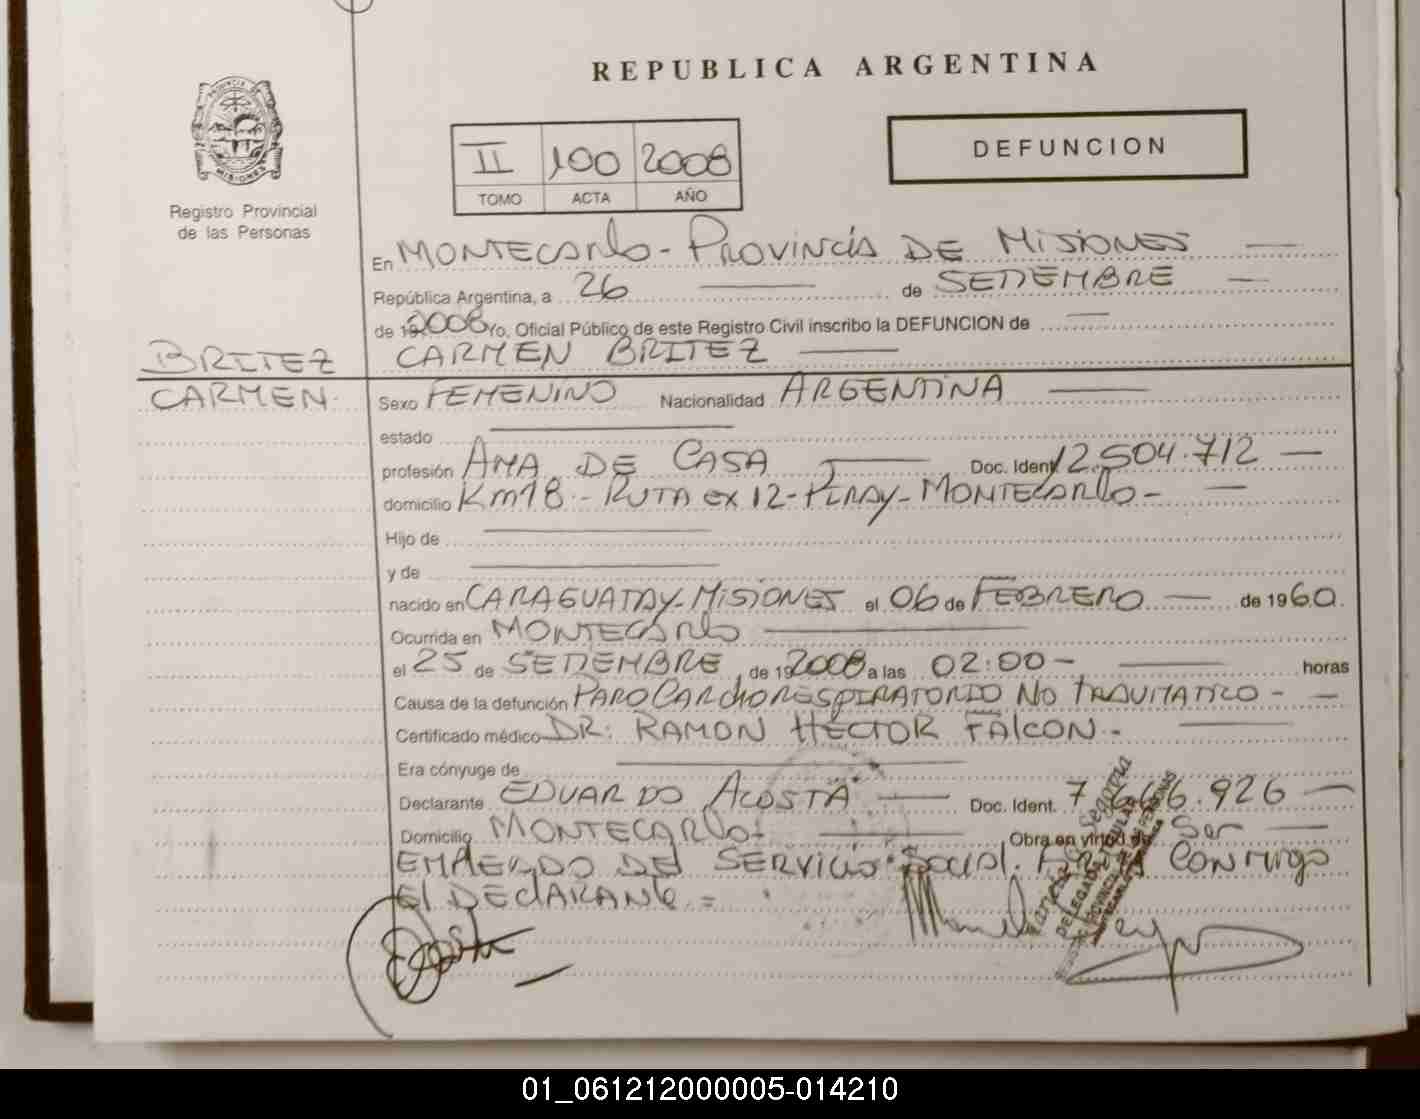 REPUBLICA ARGENTINA
PROVINCIA DE MISIONES
Registro Provincial
de las Personas
II 100 2008
TOMO ACTA AÑO
DEFUNCION
En MONTECARLO - PROVINCIA DE MISIONES
República Argentina, a 26 de SETIEMBRE
de 192008 Yo. Oficial Público de este Registro Civil inscribo la DEFUNCION de
BRITEZ CARMEN BRITEZ
CARMEN. Sexo FEMENINO Nacionalidad ARGENTINA
estado
profesión AMA DE CASA Doc. Ident 12.504.712
domicilio Km 18 - RUTA ex 12 - PIRAY - MONTECARLO -
Hijo de
y de
nacido en CARAGUATAY - MISIONES el 06 de FEBRERO de 1960.
Ocurrida en MONTECARLO
el 25 de SETIEMBRE, de 192008 a las 02:00 - horas
Causa de la defunción PARO CARDIORESPIRATORIO NO TRAUMATICO -
Certificado médico DR: RAMON HECTOR FALCON -
Era cónyuge de
Declarante EDUARDO ACOSTA Doc. Ident. 7.666.926
Domicilio MONTECARLO - Obra en virtud de Ser
EMPLEADO DEL SERVICIO SOCIAL. conmigo
El DECLARANTE =
01_061212000005-014210